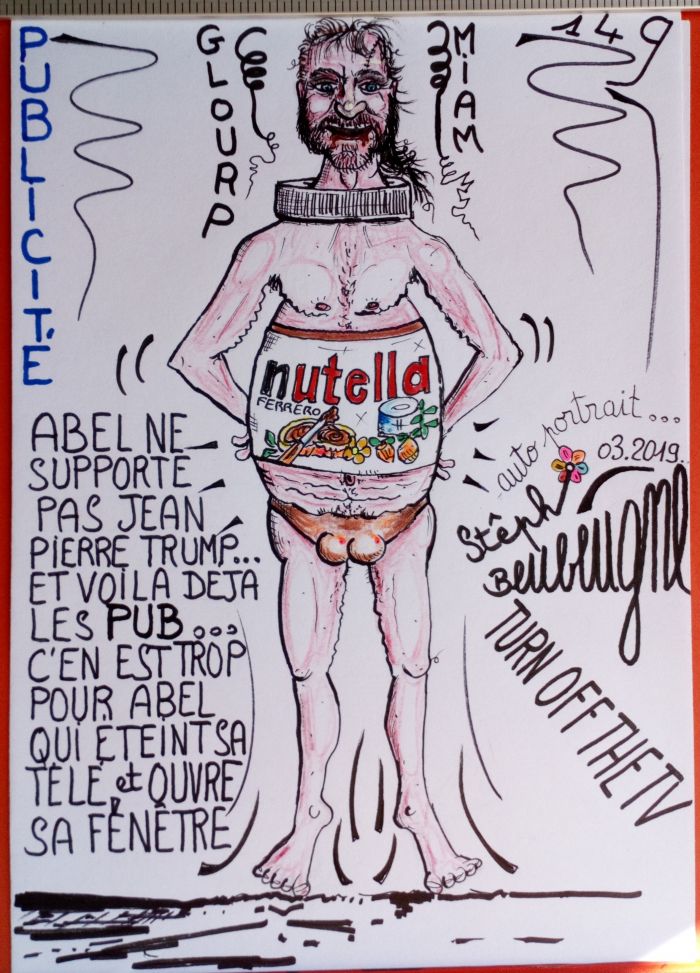 PUBLICITÉ
GLOURP
MIAM
149
nutella
FERRERO
ABEL NE
SUPPORTE
PAS JEAN
PIERRE TRUMP...
ET VOILA DEJA
LES PUB...
C'EN EST TROP
POUR ABEL
QUI ÉTEINT SA
TÉLÉ et OUVRE
SA FÊNÊTRE
-auto portrait...
03.2019..
Stéph
Beubeugne
TURN OFF THE TV